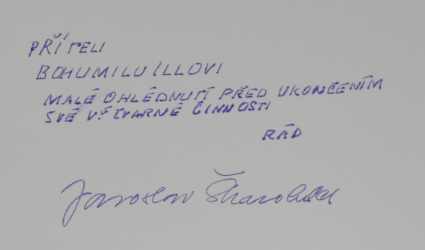 PŘÍTELI
BOHUMILU ILLOVI
MALÉ OHLÉDNUTÍ PŘED UKONČENÍM
SVÉ VÝTVARNÉ ČINNOSTI
RÁD
Jaroslav